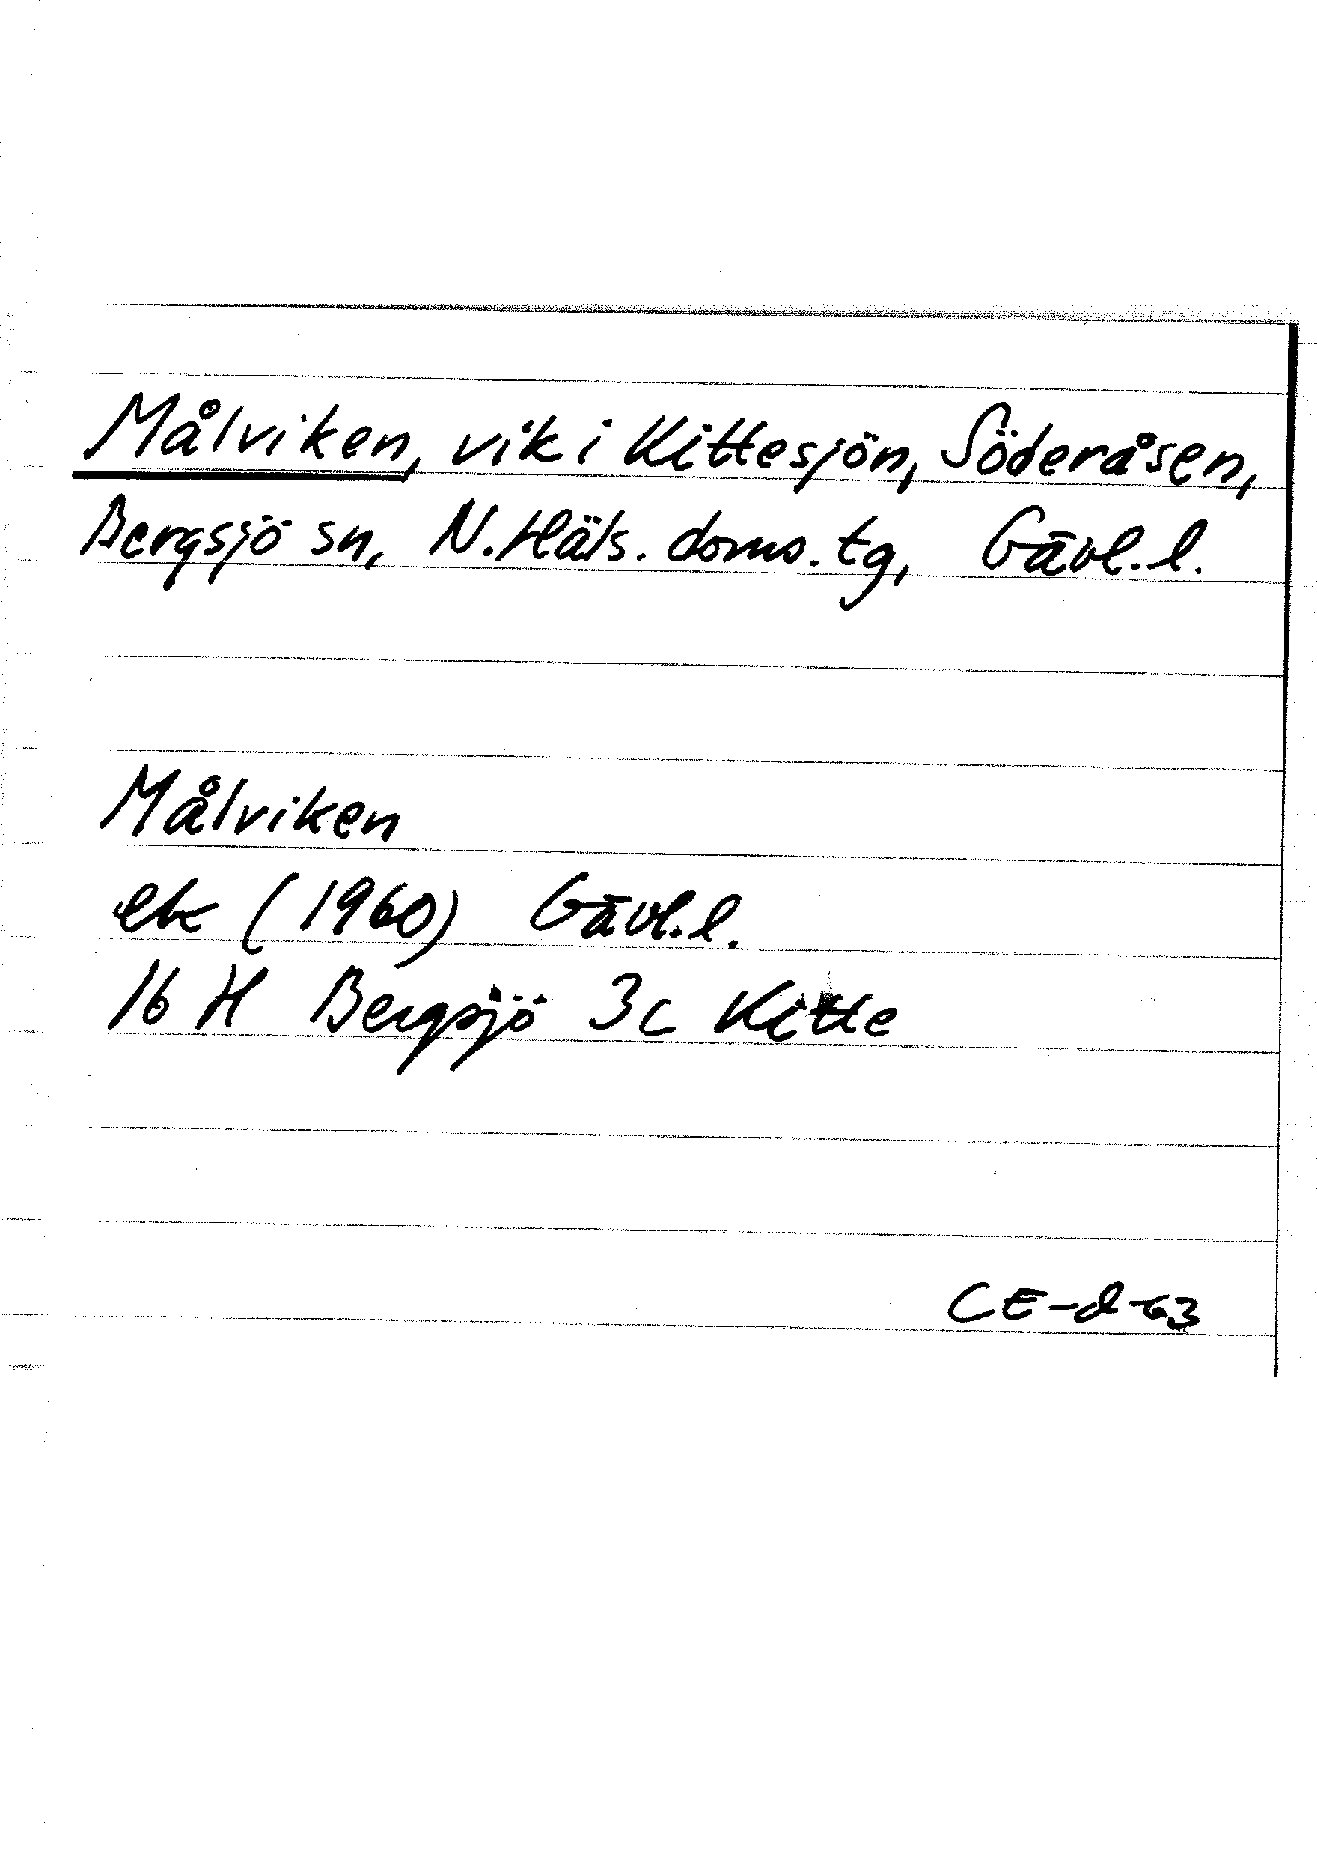 Målviken, vik i Kittesjön, Söderåsen,
Bergsjö sn, N. Häls. doms. tg, Gävl. l.
Målviken
ek (1960) Gävl. l.
16 H Bergsjö 3c Kitte
CE-d-63